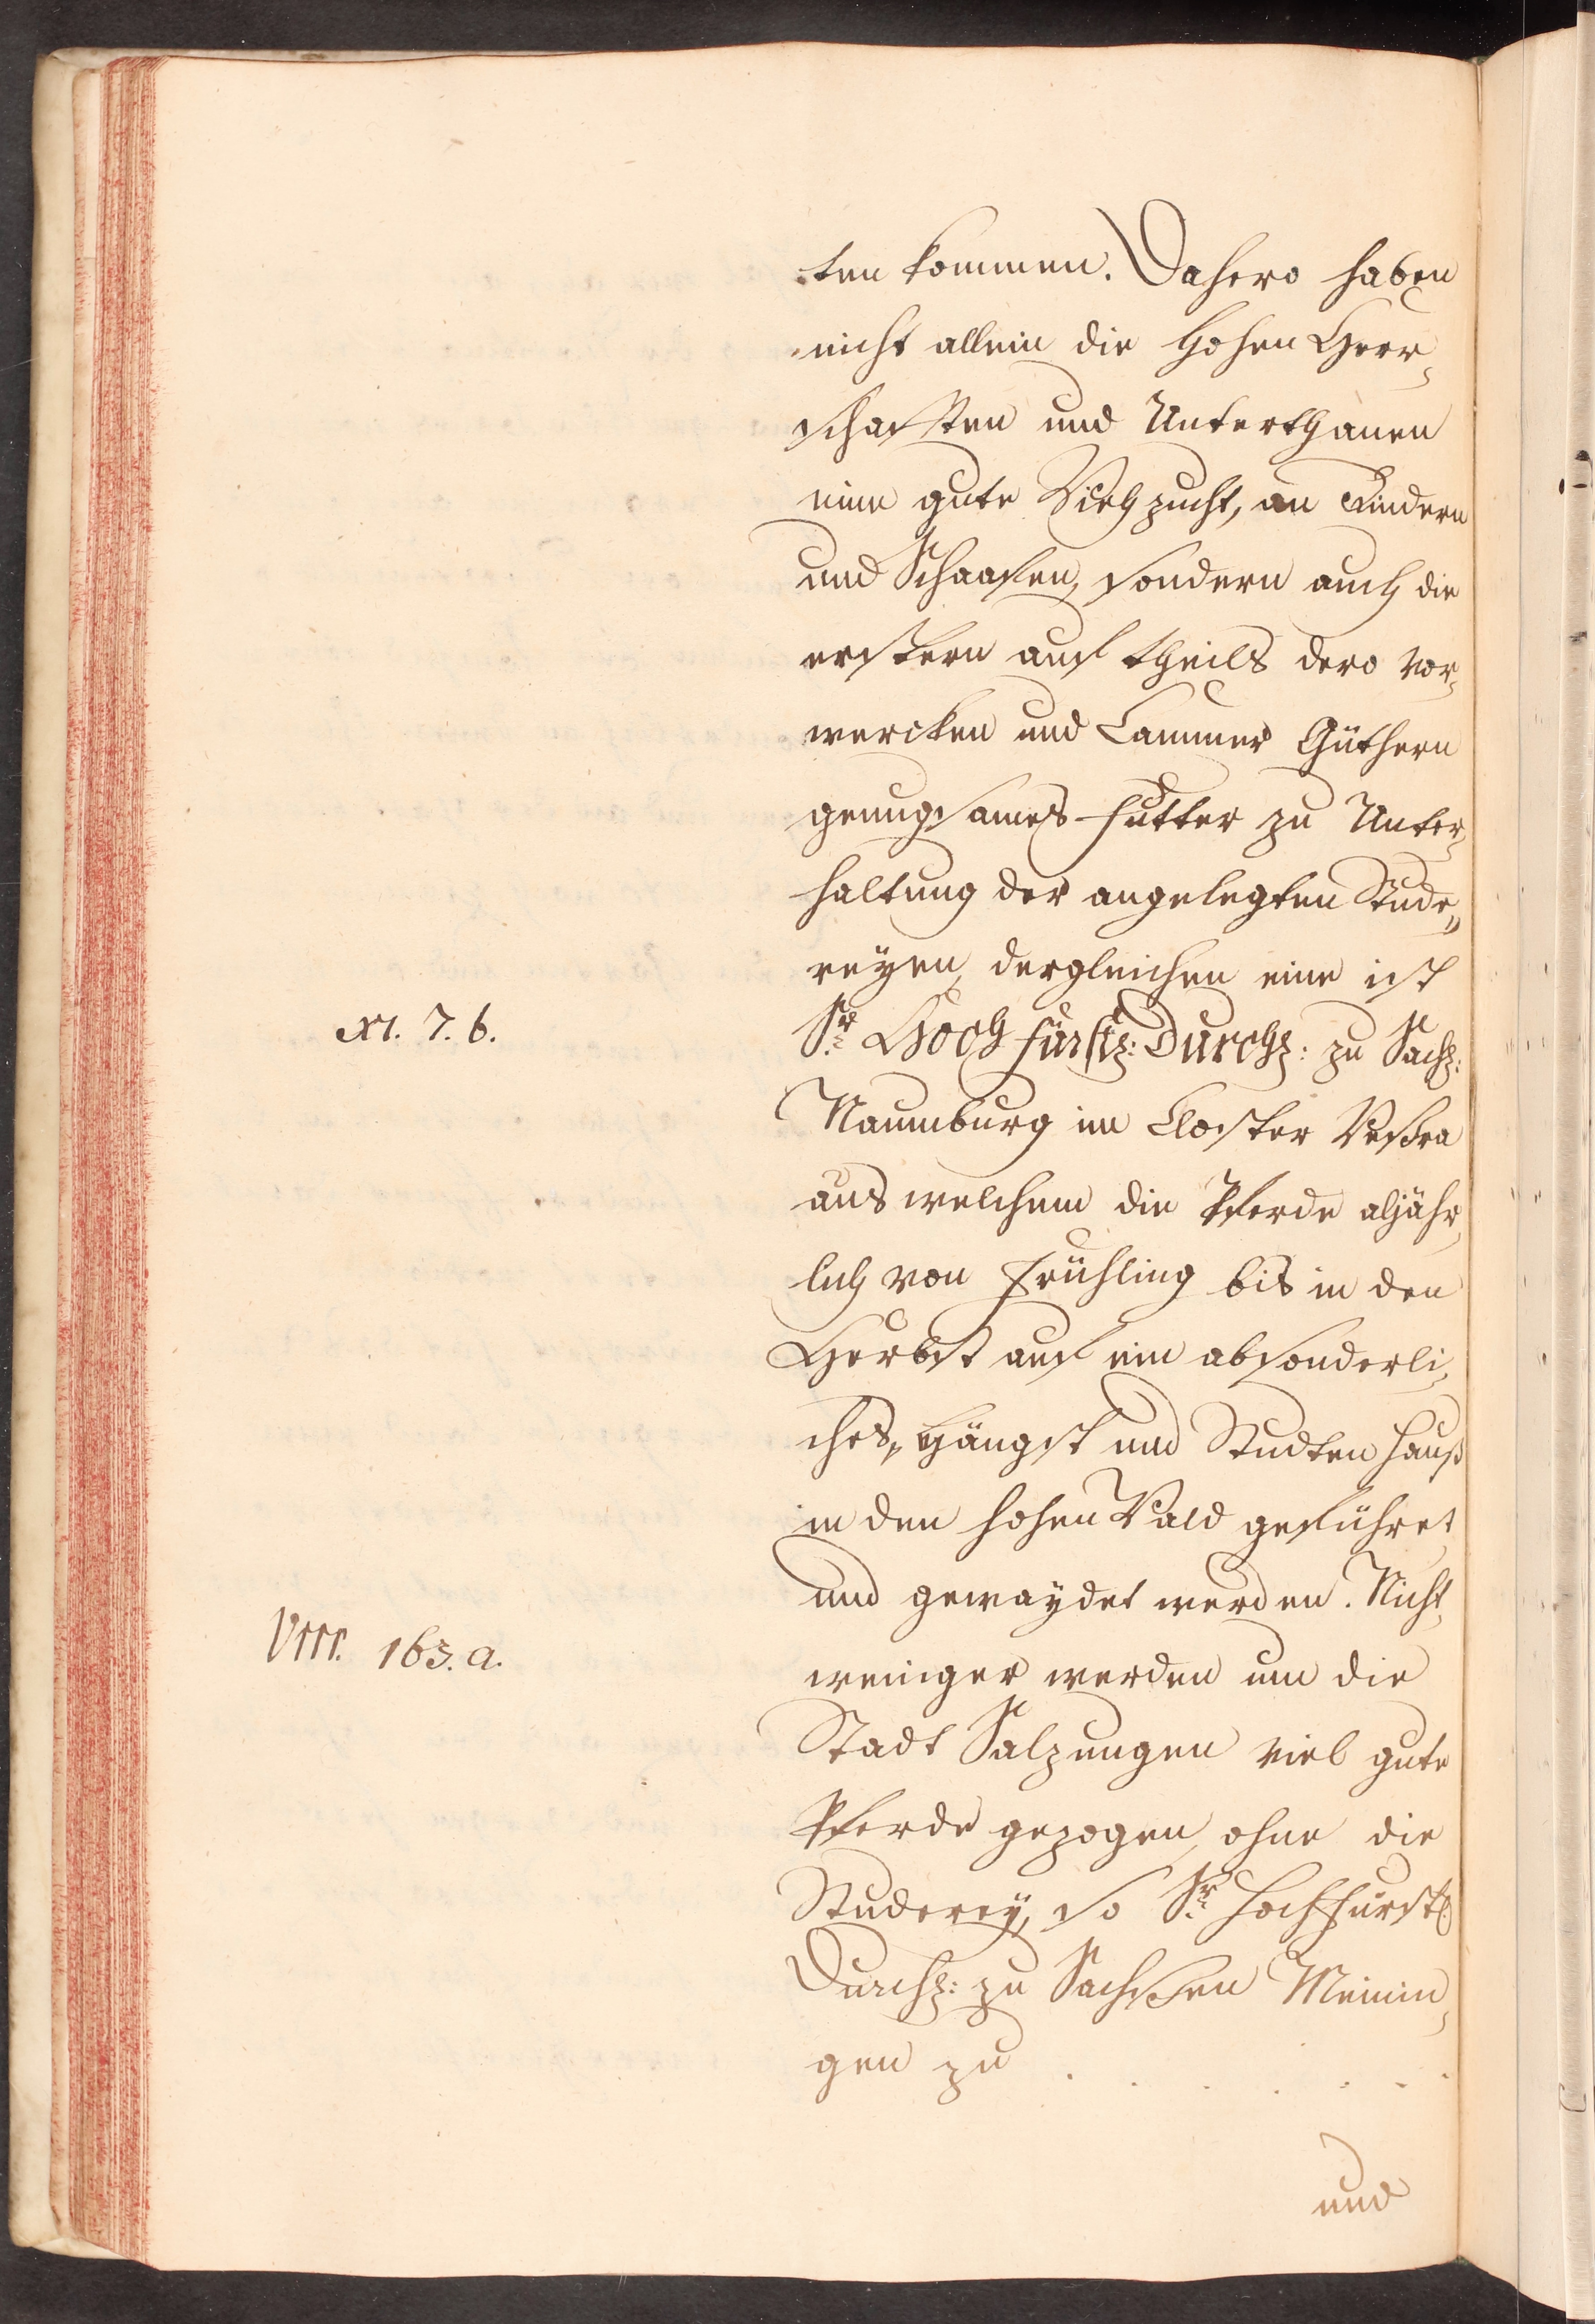 ten kommen. Dahero haben
nicht allein die Hohen Herr-
schafften und Unterthanen
eine gute Viehzucht, an Rindern
und Schaafen, sondern auch die
erstern auf theils dero Vor-
wercken und Cammer Güthern
genugsames Futter zu Unter-
haltung der angelegten Stude-
reÿen, dergleichen eine ist
XI. 7. b.
Sr. Hoch fürstl: Durchl: zu Sachß:
Naumburg im Closter Veßra
aus welchem die Pferde aljähr-
lich von Frühling bis in den
Herbst auf ein absonderli-
ches, Hängst und Studten Hauß
in den hohen Wald geführet
und gewaÿdet werden. Nicht
VIII. 163. a.
weniger werden um die
Stadt Salzungen viel gute
Pferde gezogen, ohne die
Studereÿ, so Sr. Hochfürstl.
Durchl: zu Sachßen Meinin-
gen zu . . . . . . .
und